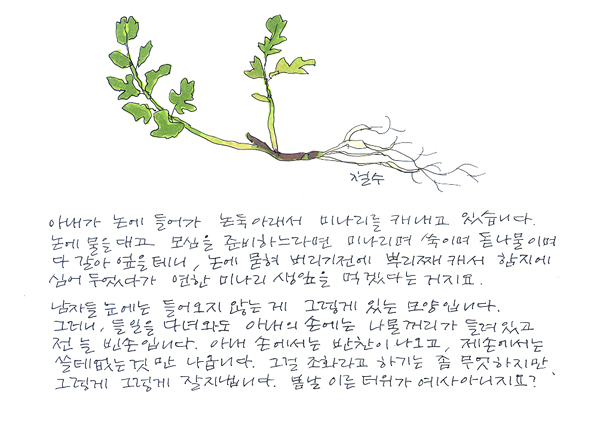 철수
아내가 논에 들어가 논둑아래서 미나리를 캐내고 있습니다.
논에 물을 대고 모심을 준비하느라면 미나리며 쑥이며 돋나물이며
다 갈아 엎을테니, 논에 묻혀 버리기전에 뿌리째 캐서 함지에
심어 두었다가 연한 미나리 생잎을 먹겠다는 거지요.
남자들 눈에는 들어오지 않는 게 그렇게 있는 모양입니다.
그러니, 들일을 다녀와도 아내의 손에는 나물꺼리가 들려 있고
전 늘 빈손입니다. 아내 손에서는 반찬이 나오고, 제손에서는
쓸데없는것만 나옵니다. 그걸 조화라고 하기는 좀 무엇하지만
그렇게 그렇게 잘지냅니다. 봄날 이른 더위가 예사아니지요?